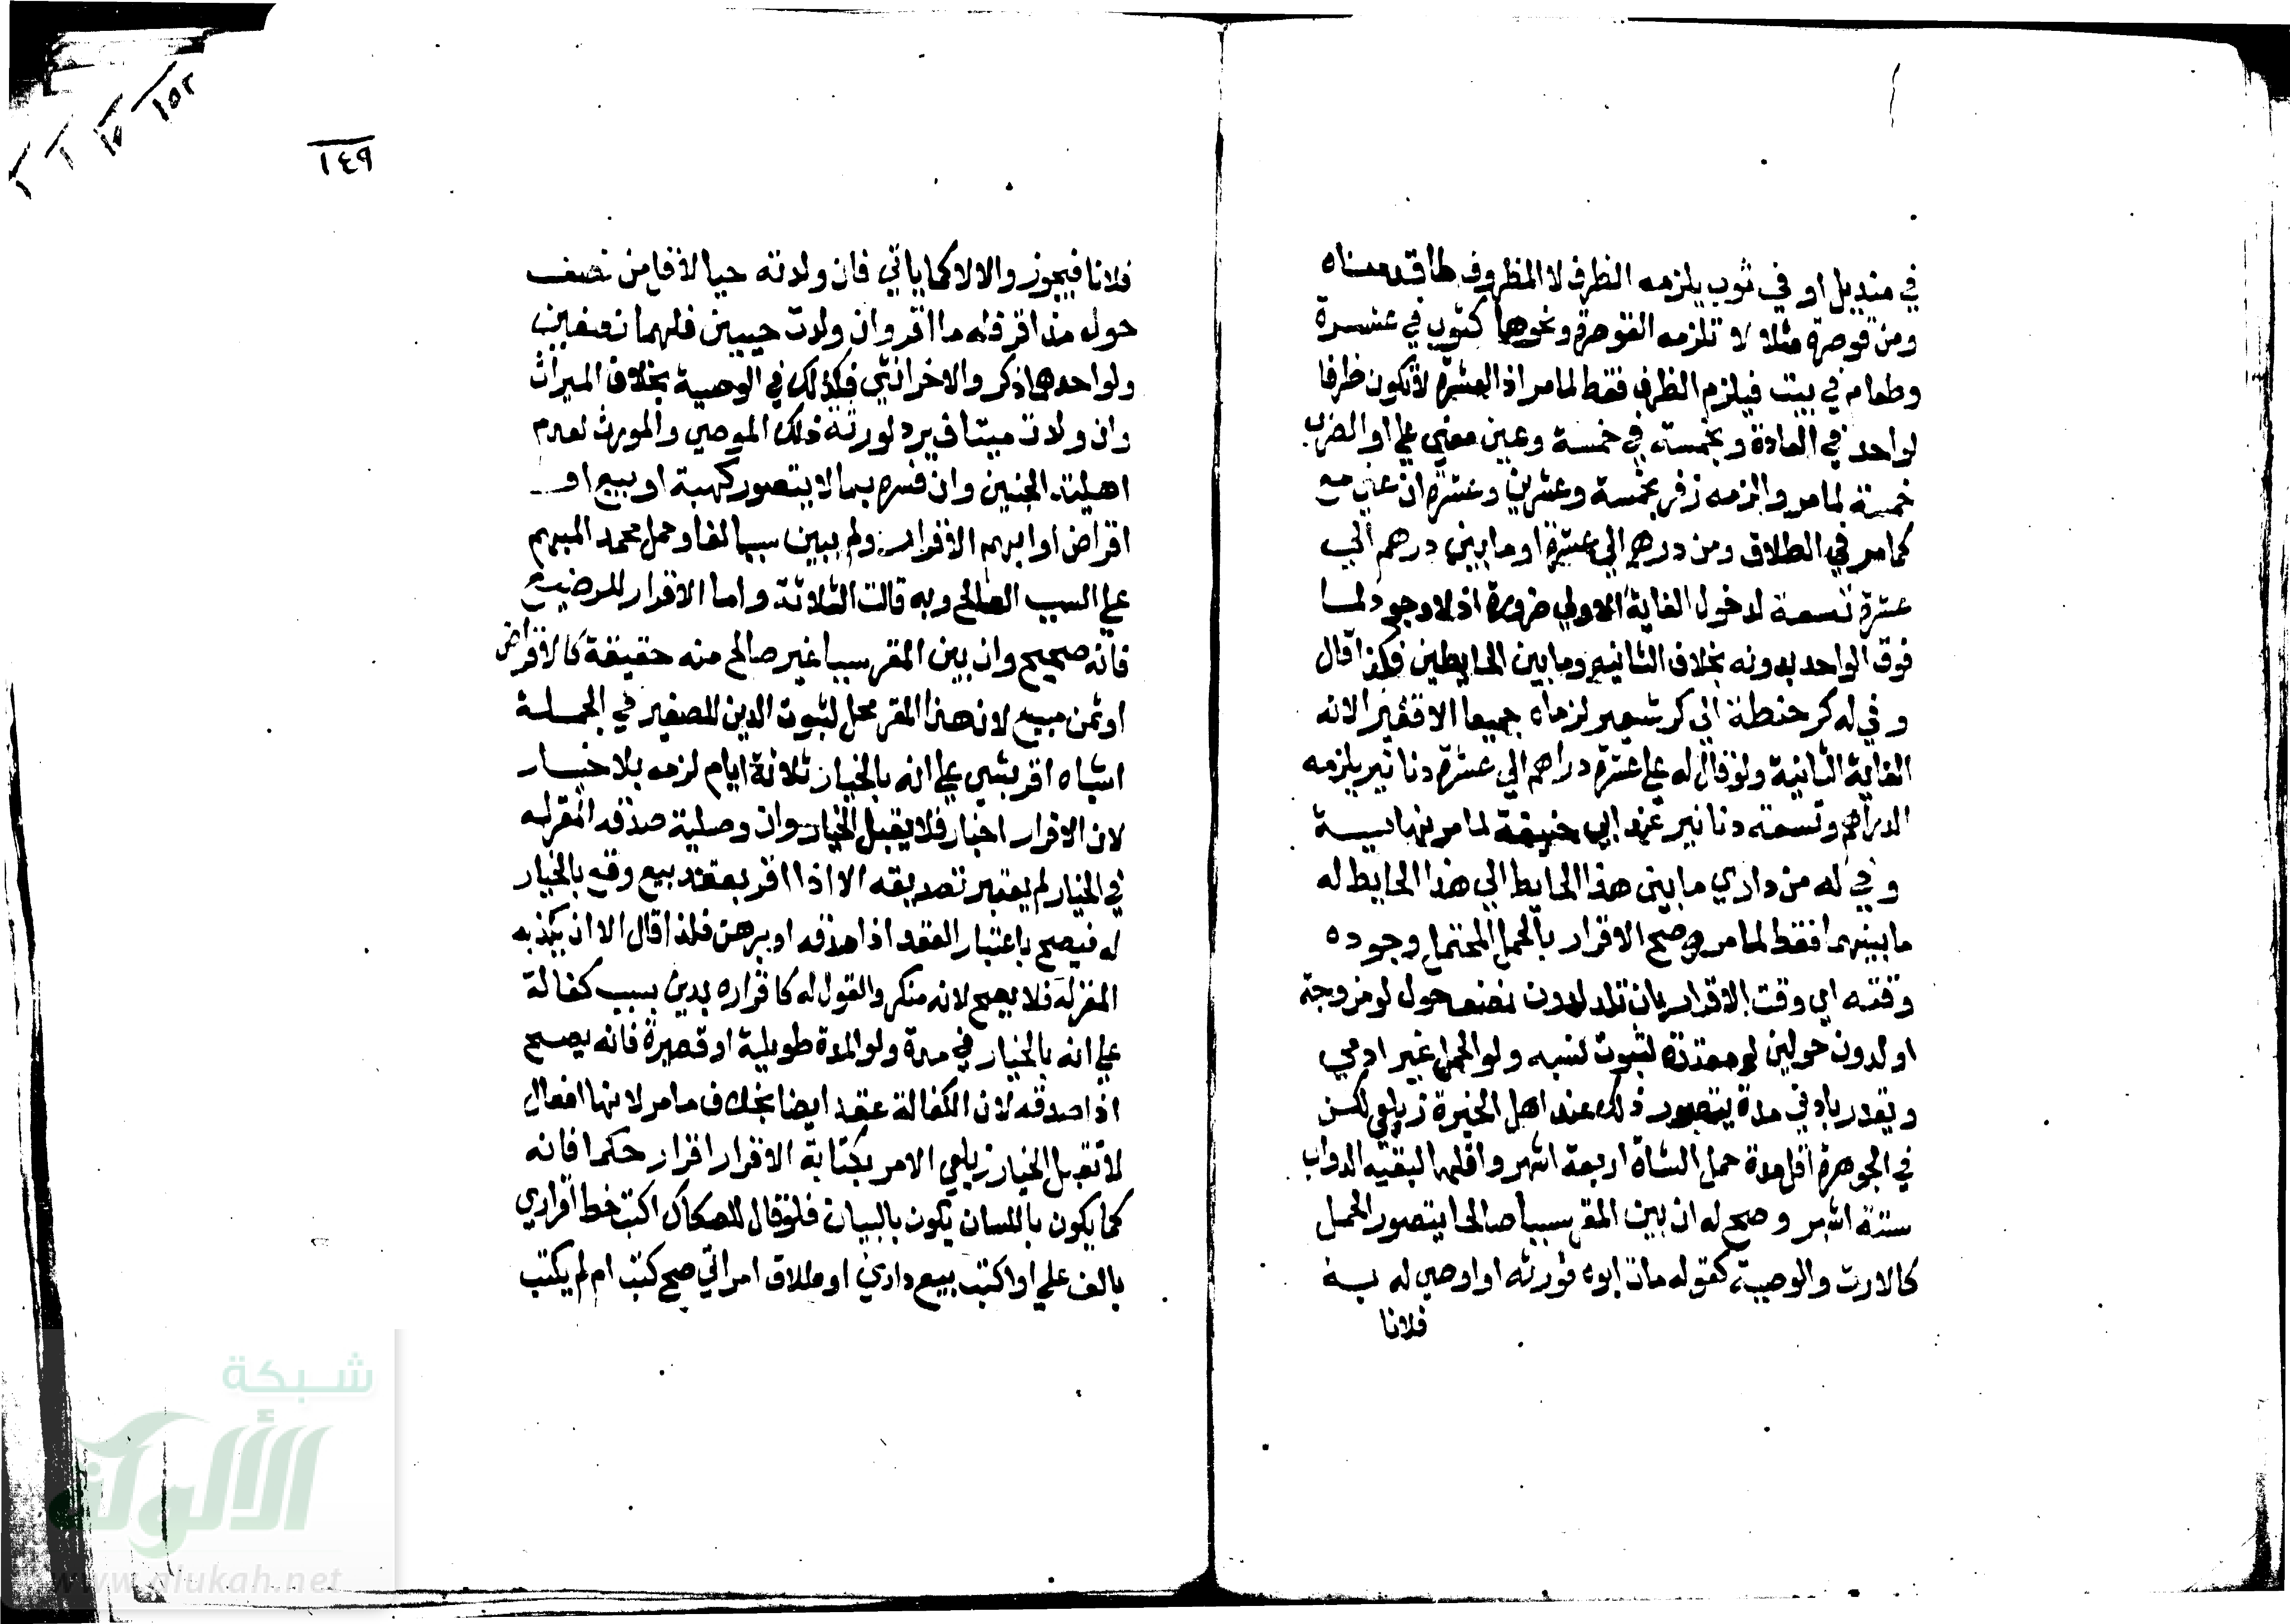 في منديل او في ثوب يلزمه الظرف لا المظروف كما قدمناه
ومن قوصرة مثلا لا تلزمه القوصرة ونحوها كثوب في عشرة
وطعام في بيت فيلزم الظرف فقط لما مر اذ العشرة لا تكون ظرفا
لواحد في العادة وبخمسة في خمسة وعين معني علي او الضرب
خمسة لما مر والزمه زفر بخمسة وعشرين وعشرة ان عني مع
كما مر في الطلاق ومن درهم الي عشرة او ما بين درهم الي
عشرة تسعة لدخول الغاية الاولي ضرورة اذ لا وجود لما
فوق الواحد بدونه بخلاف الثانية وما بين الحايطين فكذا قال
و في له كر حنطة الي كر شعير لزماه جميعا الا قفيزا لانه
الغاية الثانية ولو قال له علي عشرة دراهم الي عشرة دنانير يلزمه
الدراهم وتسعة دنانير عند ابي حنيفة لما مر نهاية
و في له من داري ما بين هذا الحايط الي هذا الحايط له
ما بينهما فقط لما مر وصح الاقرار بالحمل المحتمل وجوده
وقته اي وقت الاقرار بان تلد لدون نصف حول لو مزوجة
او لدون حولين لو معتدة لثبوت نسبه ولو الحمل غير ادمي
ويقدر بادني مدة يتصور ذلك عند اهل الخبرة زيلعي لكن
في الجوهرة اقل مدة حمل الشاة اربعة اشهر واقلها لبقية الدواب
ستة اشهر وصح له ان بين المقر سببا صالحا يتصور للحمل
كالارث والوصية كقوله مات ابوه فورثه او اوصي له به
فلانا
١٤٩
١٥٢
فلانا فيجوز والا لا كما ياتي فان ولدته حيا لاقل من نصف
حول مذ اقر فله ما اقر وان ولدت حيين فلهما نصفين
ولو احدهما ذكر والاخر انثي فكذلك في الوصية بخلاف الميراث
وان ولدت ميتا فيرد لورثة ذلك الموصي والمورث لعدم
اهلية الجنين وان فسره بما لا يتصور كهبة او بيع او
اقراض او ابهم الاقرار ولم يبين سببا لغا وحمل محمد المبهم
علي السبب الصالح وبه قالت الثلاثة واما الاقرار للرضيع
فانه صحيح وان بين المقر سببا غير صالح منه حقيقة كالاقراض
او ثمن مبيع لان هذا المقر محل لثبوت الدين للصغير في الجملة
اشباه اقر بشي علي انه بالخيار ثلاثة ايام لزمه بلا خيار
لان الاقرار اخبار فلا يقبل الخيار وان وصلية صدقه المقر له
في الخيار لم يعتبر تصديقه الا اذا اقر بعقد بيع وقع بالخيار
له فيصح باعتبار العقد اذا صدقه او برهن فلذا قال الا ان يكذبه
المقر له فلا يصح لانه منكر والقول له كاقراره بدين بسبب كفالة
علي انه بالخيار في مدة ولو المدة طويلة او قصيرة فانه يصح
اذا صدقه لان الكفالة عقد ايضا بخلاف ما مر لانها افعال
لا تقبل الخيار زيلعي الامر بكتابة الاقرار اقرار حكما فانه
كما يكون باللسان يكون بالبيان فلو قال للصكاك اكتب خط اقراري
بالف علي او اكتب بيع داري او طلاق امراتي صح كتب ام لم يكتب
شبكة
الألوكة
www.alukah.net